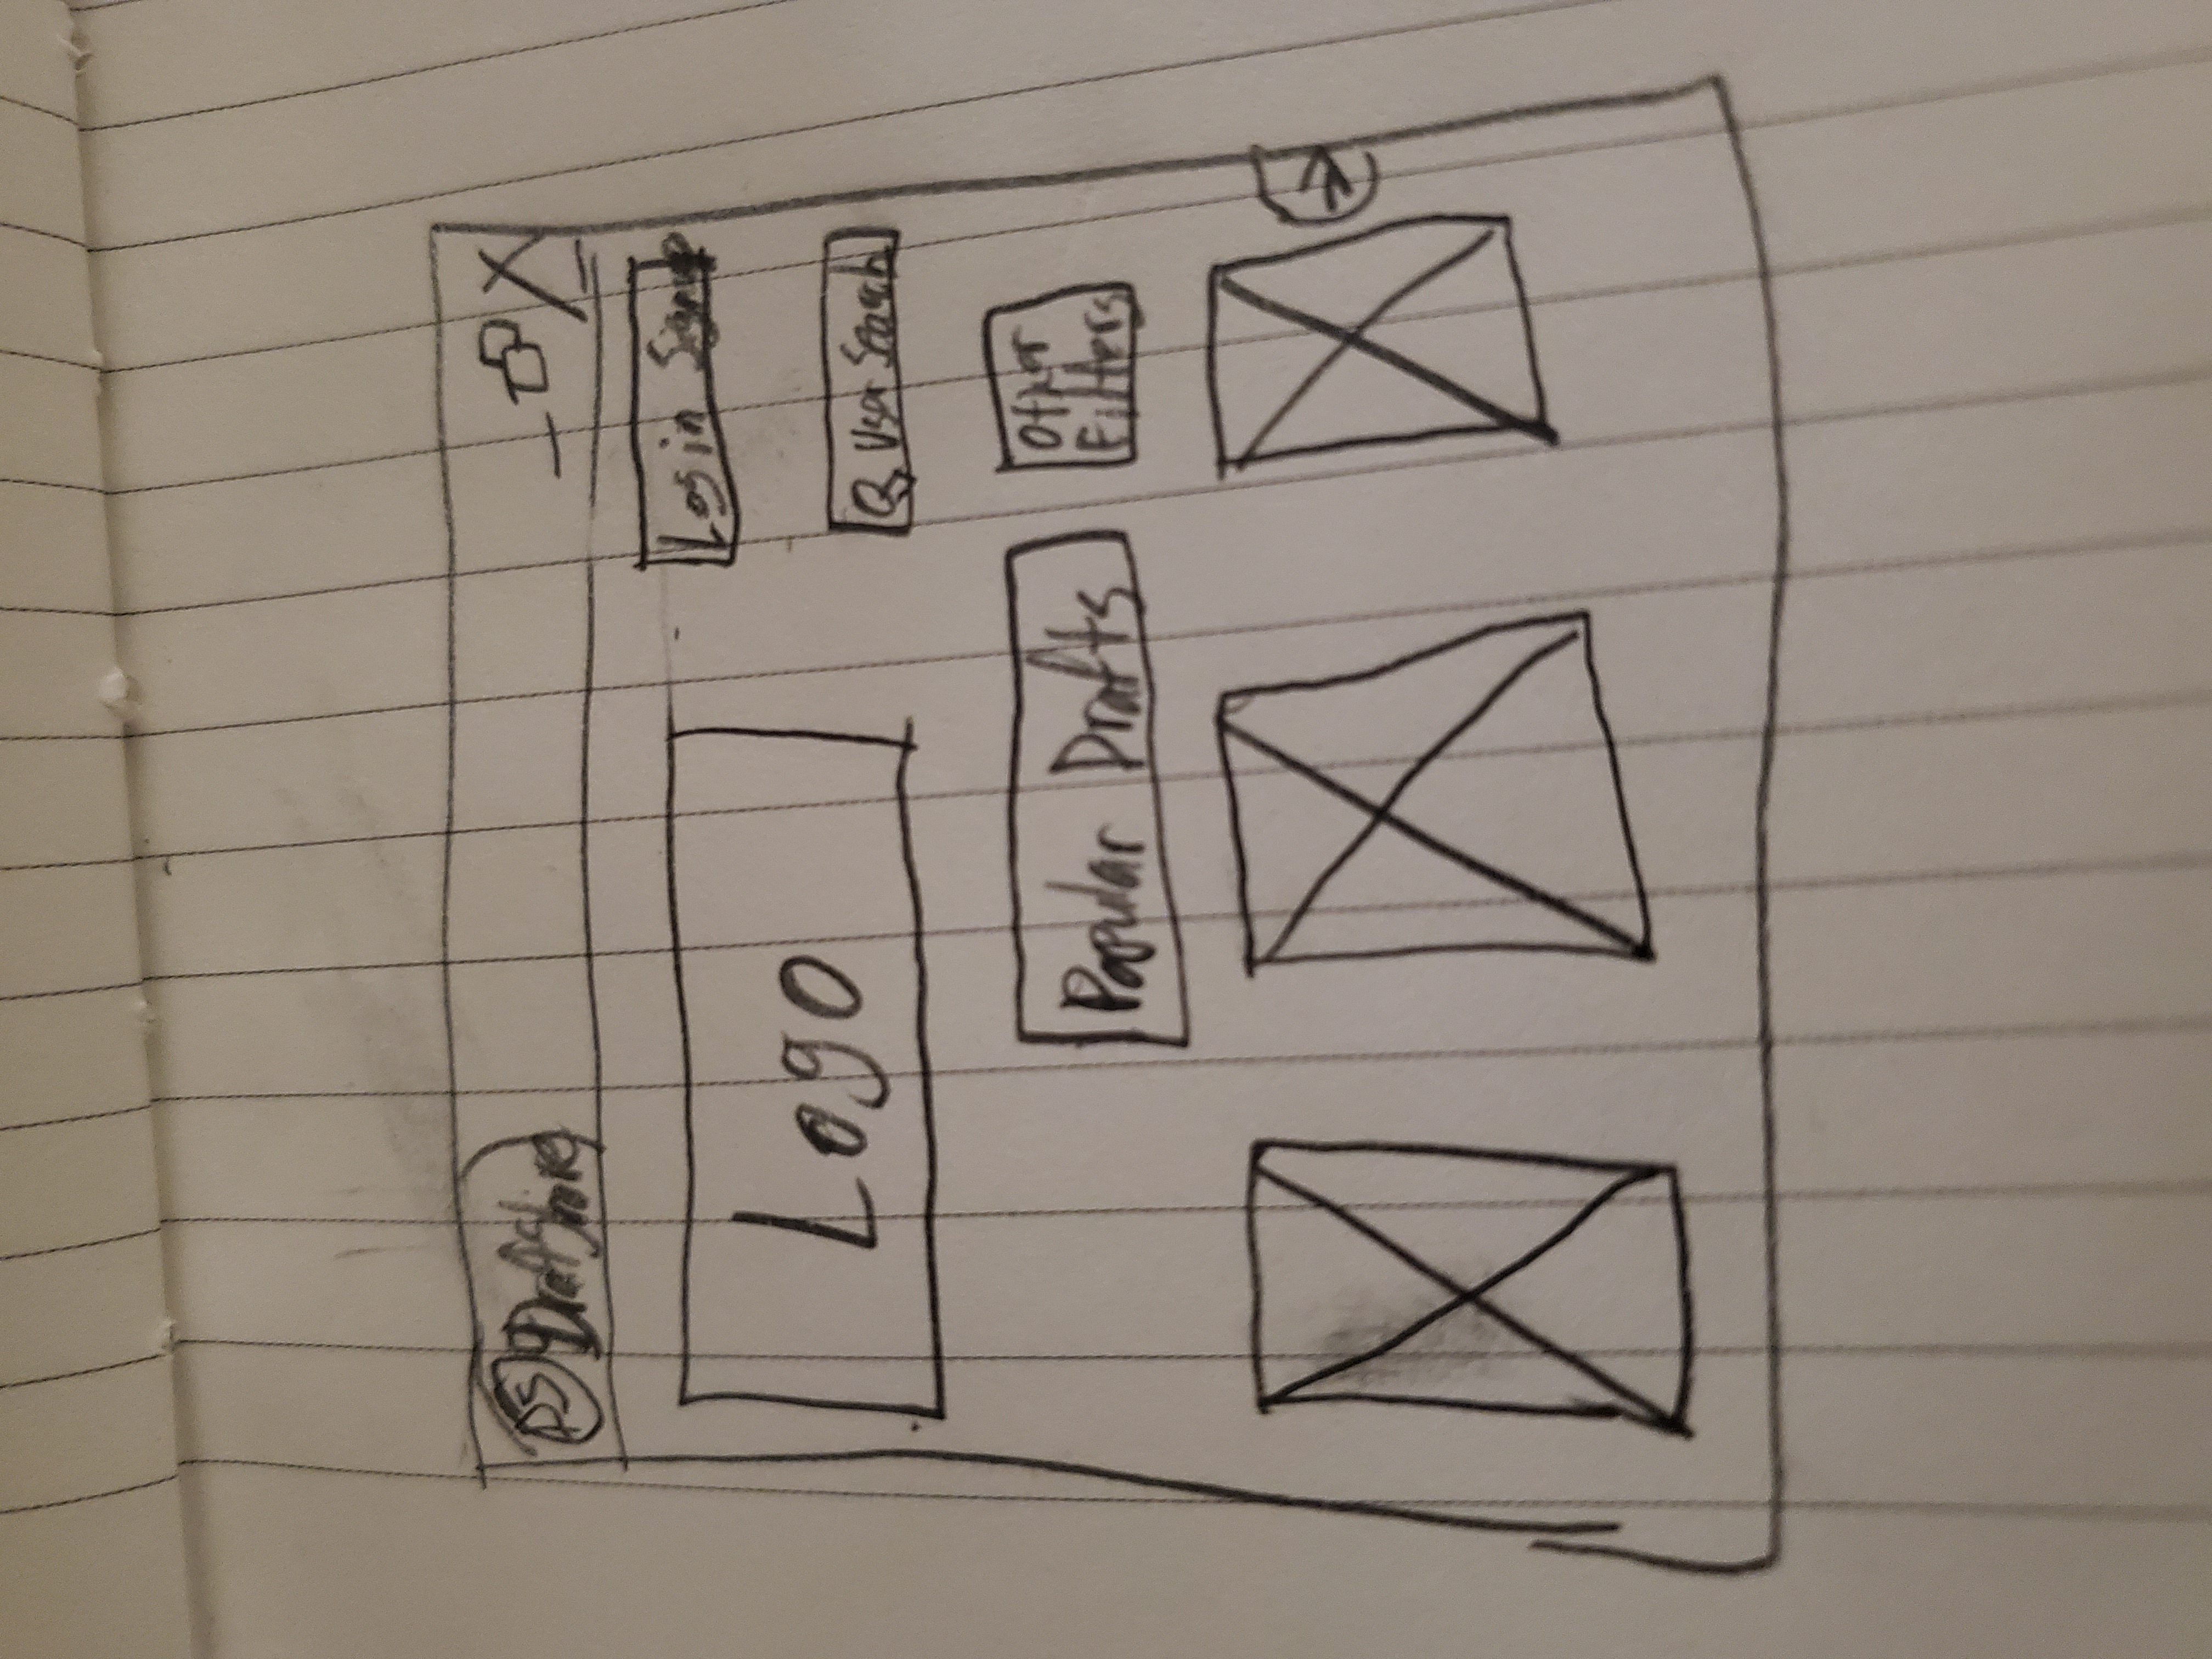 DS DraftShare
Login Signup
Logo
User Search
Popular Drafts
Other
Filters